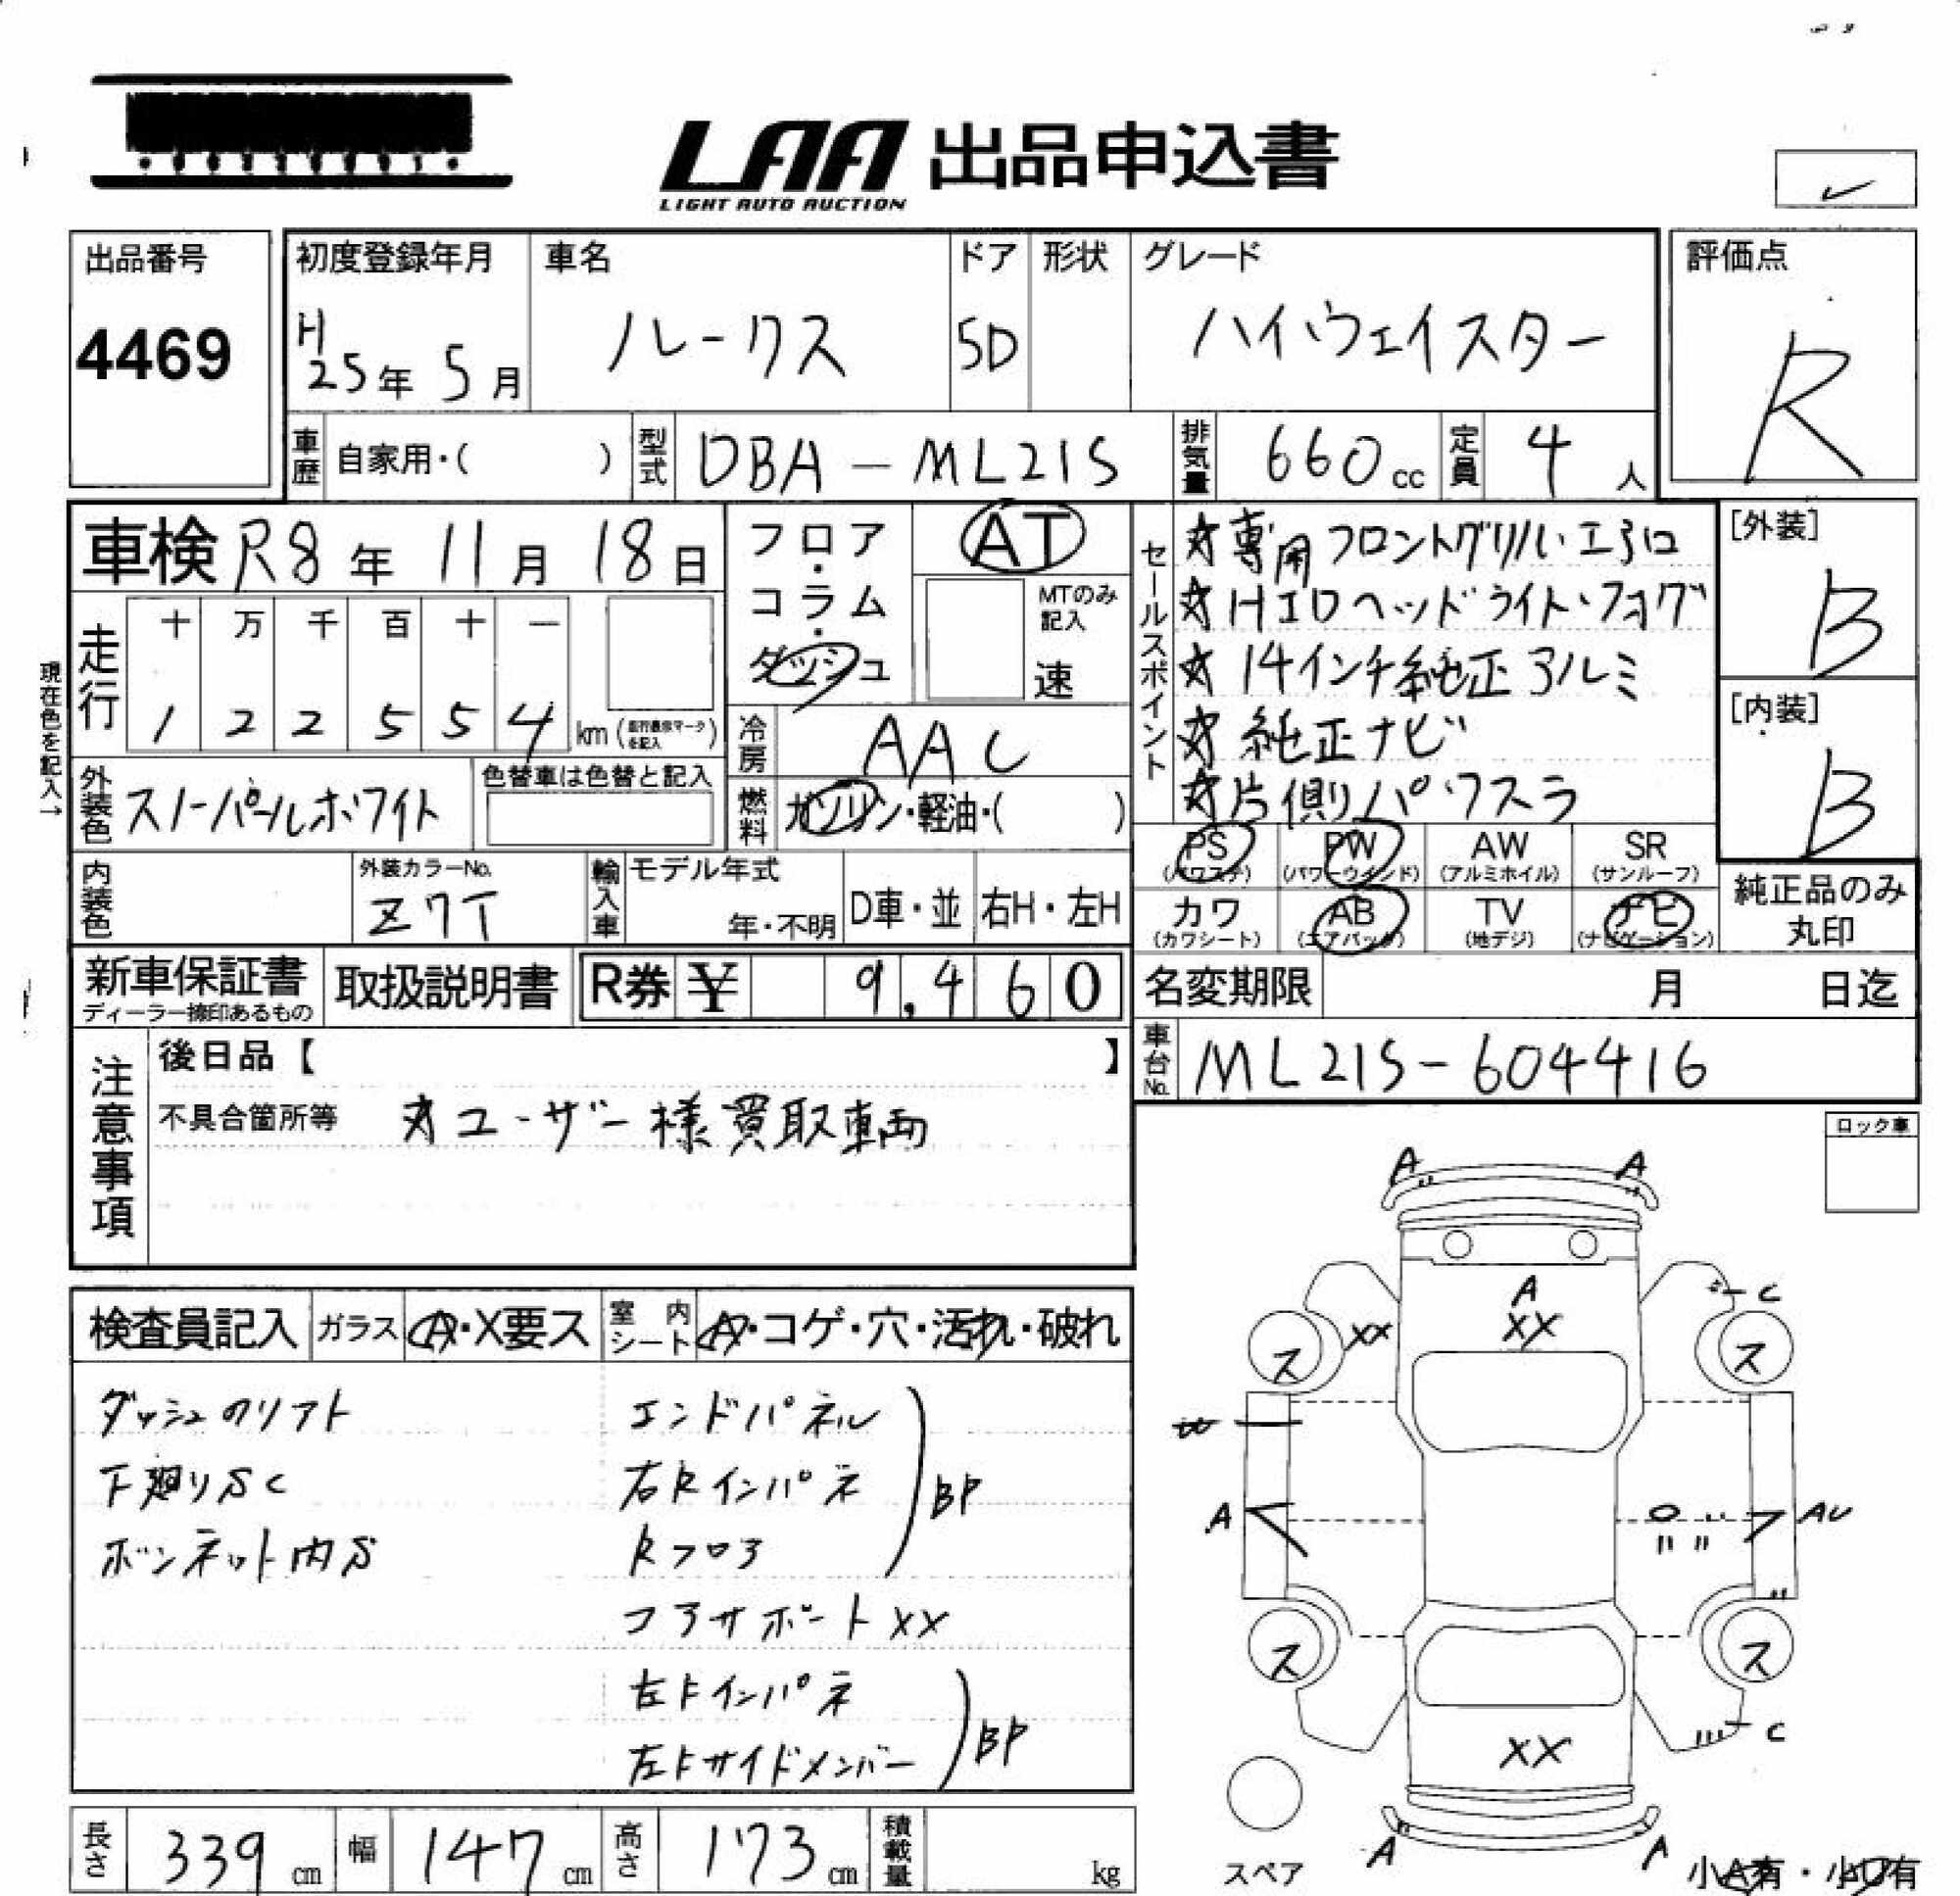 LAA 出品申込書
LIGHT AUTO AUCTION
出品番号
4469
初度登録年月
H25年 5月
車名
ルークス
ドア
5D
形状
グレード
ハイウェイスター
評価点
R
車歴 自家用・( )
型式 DBA-ML21S
排気量 660cc
定員 4人
車検 R8年 11月 18日
フロア・コラム・ダッシュ
AT
MTのみ記入
速
セールスポイント
☆専用フロントグリル・エアロ
☆HIDヘッドライト・フォグ
☆14インチ純正アルミ
☆純正ナビ
☆片側パワスラ
[外装]
B
[内装]
B
現在色を記入→
走行
十 万 千 百 十 一
1 2 2 5 5 4 km
冷房 AAC
外装色 スノーパールホワイト
色替車は色替と記入
燃料 ガソリン・軽油・( )
内装色
外装カラーNo.
Z7T
輸入車
モデル年式
年・不明
D車・並
右H・左H
PS (パワステ)
PW (パワーウインド)
AW (アルミホイル)
SR (サンルーフ)
カワ (カワシート)
AB (エアバック)
TV (地デジ)
ナビ (ナビゲーション)
純正品のみ丸印
新車保証書
ディーラー捺印あるもの
取扱説明書
R券 ¥ 9,460
名変期限 月 日迄
車台No. ML21S-604416
注意事項
後日品【 】
不具合箇所等 ☆ユーザー様買取車両
ロック車
検査員記入
ガラス A・X要ス
室内シート A・コゲ・穴・汚れ・破れ
ダッシュのリアト
下廻りSC
ボンネット内S
エンドパネル
右Rインパネ
Rフロア
BP
コアサポート XX
左Fインパネ
左Fサイドメンバー
BP
A A
A
XX
XX
C
ス ス
W
A
AU
ス ス
XX
C
A A
スペア
小A有・小U有
長さ 339cm
幅 147cm
高さ 173cm
積載量 kg